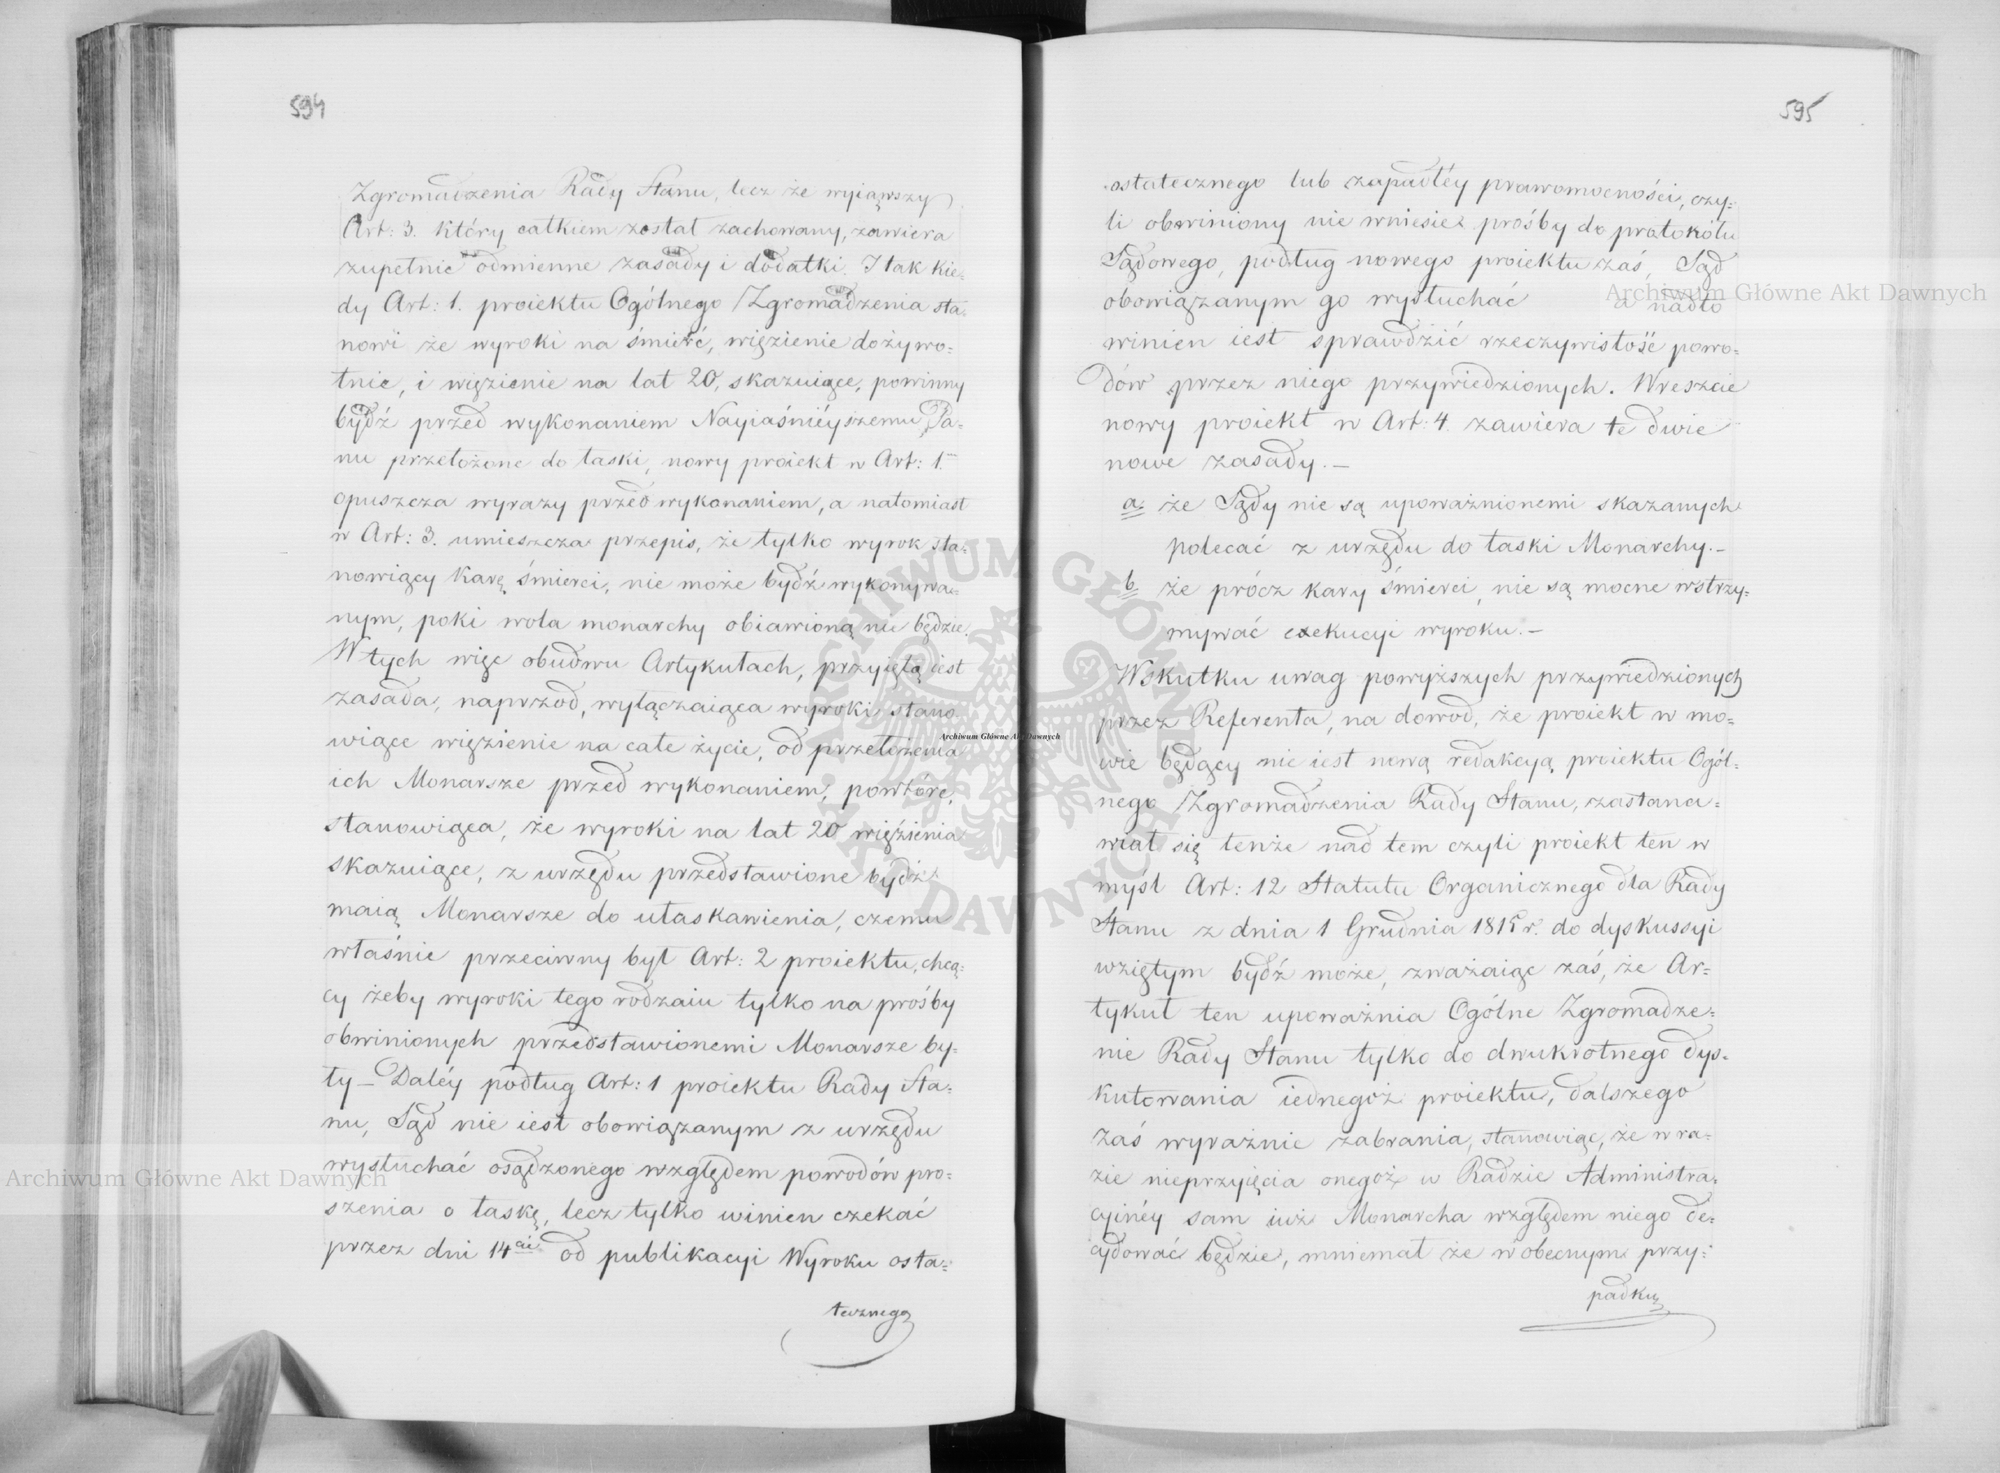 594
Zgromadzenia Rady Stanu, lecz że wyiąwszy
Art: 3. który całkiem został zachowany, zawiera
zupełnie odmienne zasady i dodatki. I tak kie-
dy Art: 1. proiektu Ogólnego Zgromadzenia sta-
nowi że wyroki na śmierć, więzienie dożywo-
tnie, i więzienie na lat 20, skazuiące, powinny
bydź przed wykonaniem Nayiaśnieyszemu Pa-
nu przełożone do łaski, nowy proiekt w Art: 1.
opuszcza wyrazy przed wykonaniem, a natomiast
w Art: 3. umieszcza przepis, że tylko wyrok sta-
nowiący karę śmierci, nie może bydź wykonywa-
nym, poki wola monarchy obiawioną nie będzie.
W tych więc obudwu Artykułach, przyiętą iest
zasada, naprzod, wyłączaiąca wyroki stano
wiące więzienie na całe życie, od przełożenia
ich Monarsze przed wykonaniem, powtóre,
stanowiąca, że wyroki na lat 20 więzienia
skazuiące, z urzędu przedstawione bydź
maią Monarsze do ułaskawienia, czemu
właśnie przeciwny był Art: 2 proiektu, chcą-
cy żeby wyroki tego rodzaiu tylko na prośby
obwinionych przedstawionemi Monarsze by-
ły – Daléy podług Art: 1 proiektu Rady Sta-
nu, Sąd nie iest obowiązanym z urzędu
wysłuchać osądzonego względem powodów pro-
szenia o łaskę, lecz tylko winien czekać
przez dni 14 od publikacyi Wyroku osta-
tecznego
595
ostatecznego lub zapadłéy prawomocności, czy-
li obwiniony nie wniesie prośby do protokółu
Sądowego, podług nowego proiektu zaś, Sąd
obowiązanym go wysłuchać a nadto
winien iest sprawdzić rzeczywistość powo-
dów przez niego przywiedzionych. Wreszcie
nowy proiekt w Art: 4. zawiera te dwie
nowe zasady. –
a. że Sądy nie są upoważnionemi skazanych
polecać z urzędu do łaski Monarchy. –
b. że prócz kary śmierci, nie są mocne wstrzy-
mywać exekucyi wyroku. –
Wskutku uwag powyższych przywiedzionych
przez Referenta, na dowod, że proiekt w mo-
wie będący nie iest nową redakcyą proiektu Ogól-
nego Zgromadzenia Rady Stanu, zastana-
wiał się tenże nad tem czyli proiekt ten w
myśl Art: 12 Statutu Organicznego dla Rady
Stanu z dnia 1 Grudnia 1815 r. do dyskussyi
wziętym bydź może, zważaiąc zaś, że Ar-
tykuł ten upoważnia Ogólne Zgromadze-
nie Rady Stanu tylko do dwukrotnego dys-
kutowania iednegoż proiektu, dalszego
zaś wyraźnie zabrania, stanowiąc, że w ra-
zie nieprzyięcia onegoż w Radzie Administra-
cyinéy sam iuż Monarcha względem niego de-
cydować będzie, mniemał że w obecnym przy-
padku
Archiwum Główne Akt Dawnych
Archiwum Główne Akt Dawnych
Archiwum Główne Akt Dawnych
ARCHIWUM GŁÓWNE AKT DAWNYCH